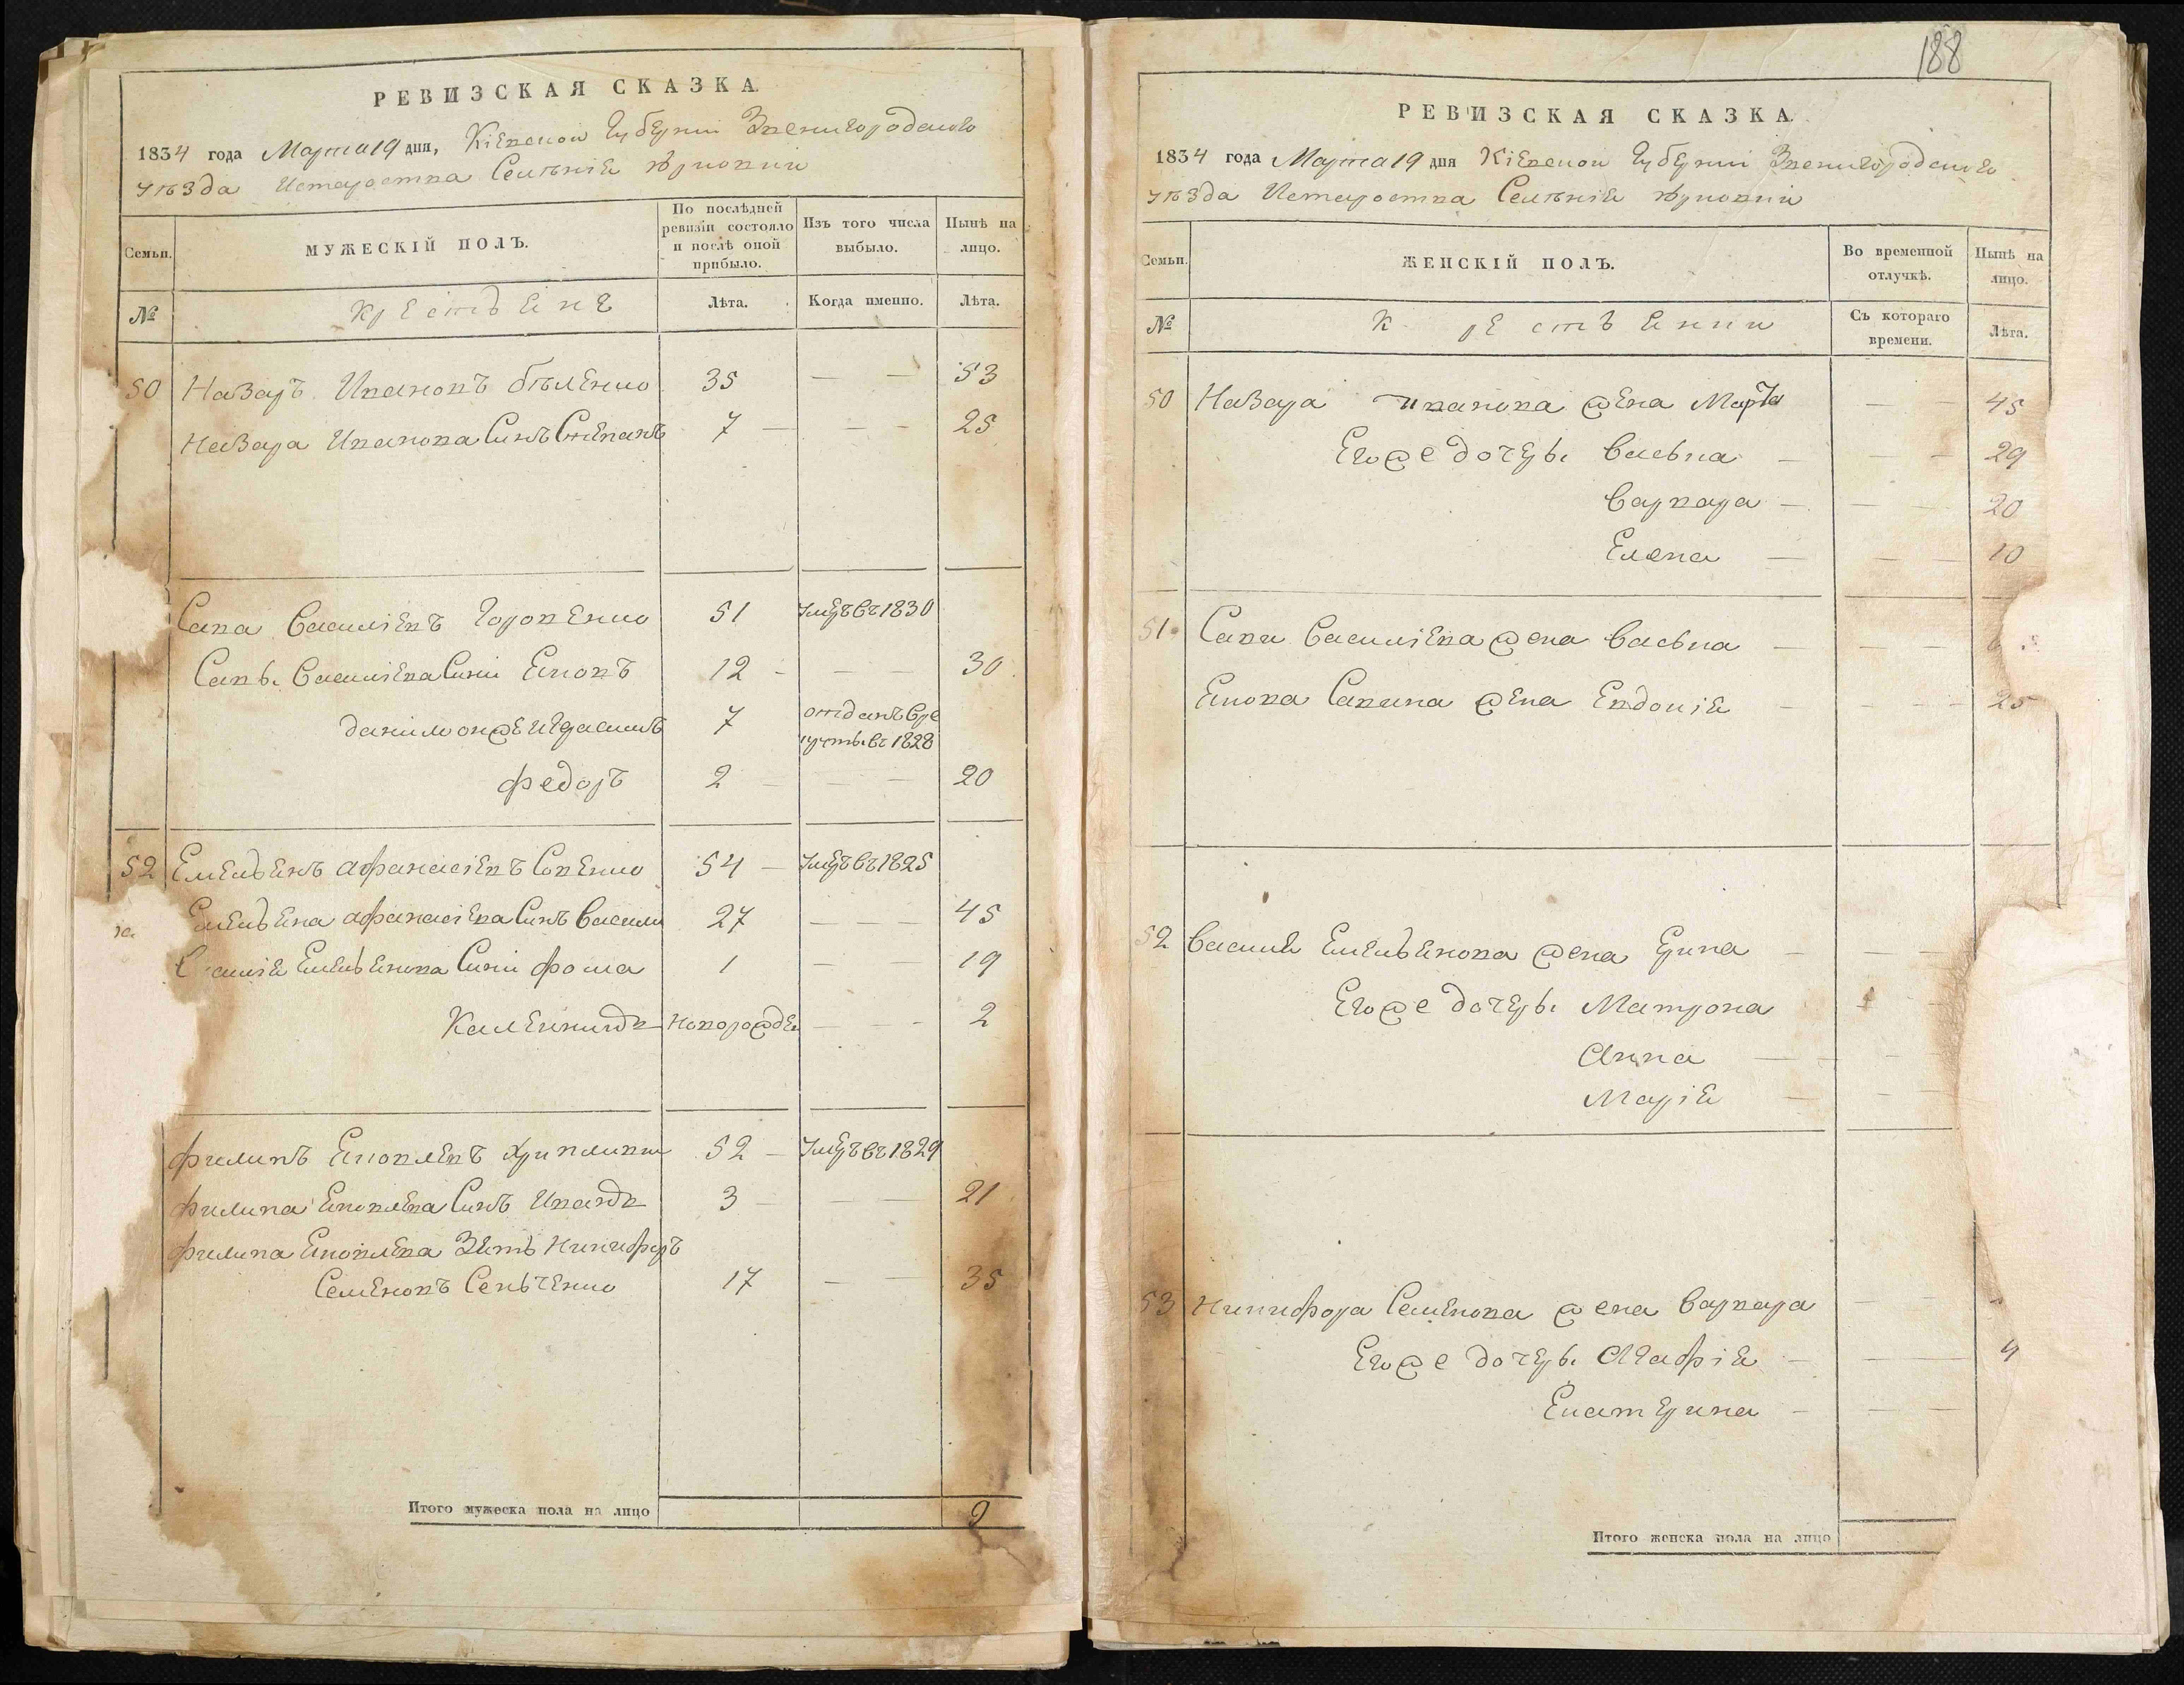 РЕВИЗСКАЯ СКАЗКА.
1834 года Марта 19 дня, Кіевской Губерніи Звенигородскаго
уѣзда Истароства Селѣнія
Семьи.
МУЖЕСКІЙ ПОЛЪ.
По послѣдней ревизіи состояло и послѣ оной прибыло.
Изъ того числа выбыло.
Нынѣ на лицо.
№
Крестьянѣ
Лѣта.
Когда именно.
Лѣта.
50 Назаръ Ивановъ Бѣленко 35 — — 53
Назара Иванова Синъ Степанъ 7 — — — 25
Сава Василіевъ 51 умеръ въ 1830
Савы Василіева Сини Яковъ 12 — — — 30
Данило онже и Герасимъ 7 отданъ в ре
круты въ 1828
Федоръ 2 — — — 20
52 Емельянъ Афанасіевъ Совенко 54 — умеръ въ 1825
Емельяна Афанасіева Синъ Василий 27 — — — 45
Василія Емельянова Сини Фома 1 — — 19
Каленникъ Новорожде — — — 2
Филипъ Яковлевъ 52 — умеръ въ 1829
Филипа Яковлева Синъ Иванъ 3 — — — 21
Филипа Яковлева Зять Никифоръ
Семеновъ Сенченко 17 — — 35
Итого мужеска пола на лицо 9
188
РЕВИЗСКАЯ СКАЗКА.
1834 года Марта 19 дня Кіевской Губерніи Звенигородскаго
уѣзда Истароства Селѣнія
Семьи.
ЖЕНСКІЙ ПОЛЪ.
Во временной отлучкѣ.
Нынѣ на лицо.
№
Крестьянки
Съ котораго времени.
Лѣта.
50 Назара Иванова жена Марта — — 45
Егоже дочеры Васьна — — — 29
Варвара — — — 20
Елена — — — 10
51 Савы Василіева жена Васьна — — —
Якова Савина жена Евдокія — — — 25
52 Василия Емельянова жена Ярина — — —
Егоже дочеры Матрона
Анна — —
Марія — —
53 Никифора Семенова жена Варвара — —
Егоже дочеры Агафія — — — 9
Екатерина — — —
Итого женска пола на лицо